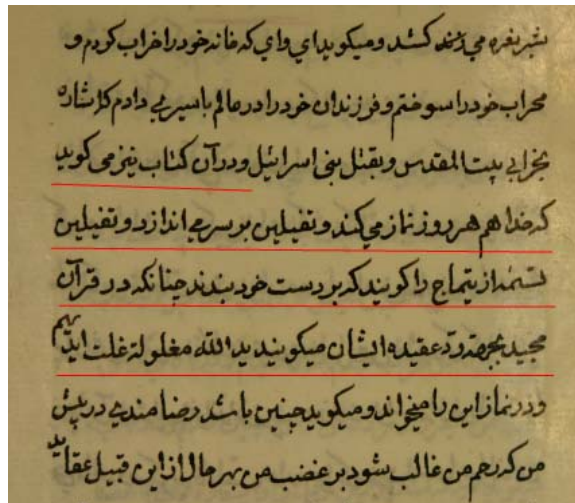 شیر نعره می‌زند کشد و میکوید ای وای که خانه خود را خراب کردم و
محراب خود را سوختم و فرزندان خود را در عالم باسیری دادم که اشاره
بخرابی بیت المقدس و بقتل بنی اسرائیل و در آن کتاب نیز می کوید
که خدا هم هر روز نماز می کند و تفیلین بر سر می اندازد و تفیلین
تسمه از تیماج را کویند که بر دست خود بندند چنانکه در قرآن
مجید بجهة رد عقیده ایشان میکویند ید الله مغلولة غلت ایدیهم
و در نماز این را میخواند و میکوید چنین باشد رضامندی در پیش
من که رحم من غالب شود بر غضب من بهر حال از این قبیل عقاید